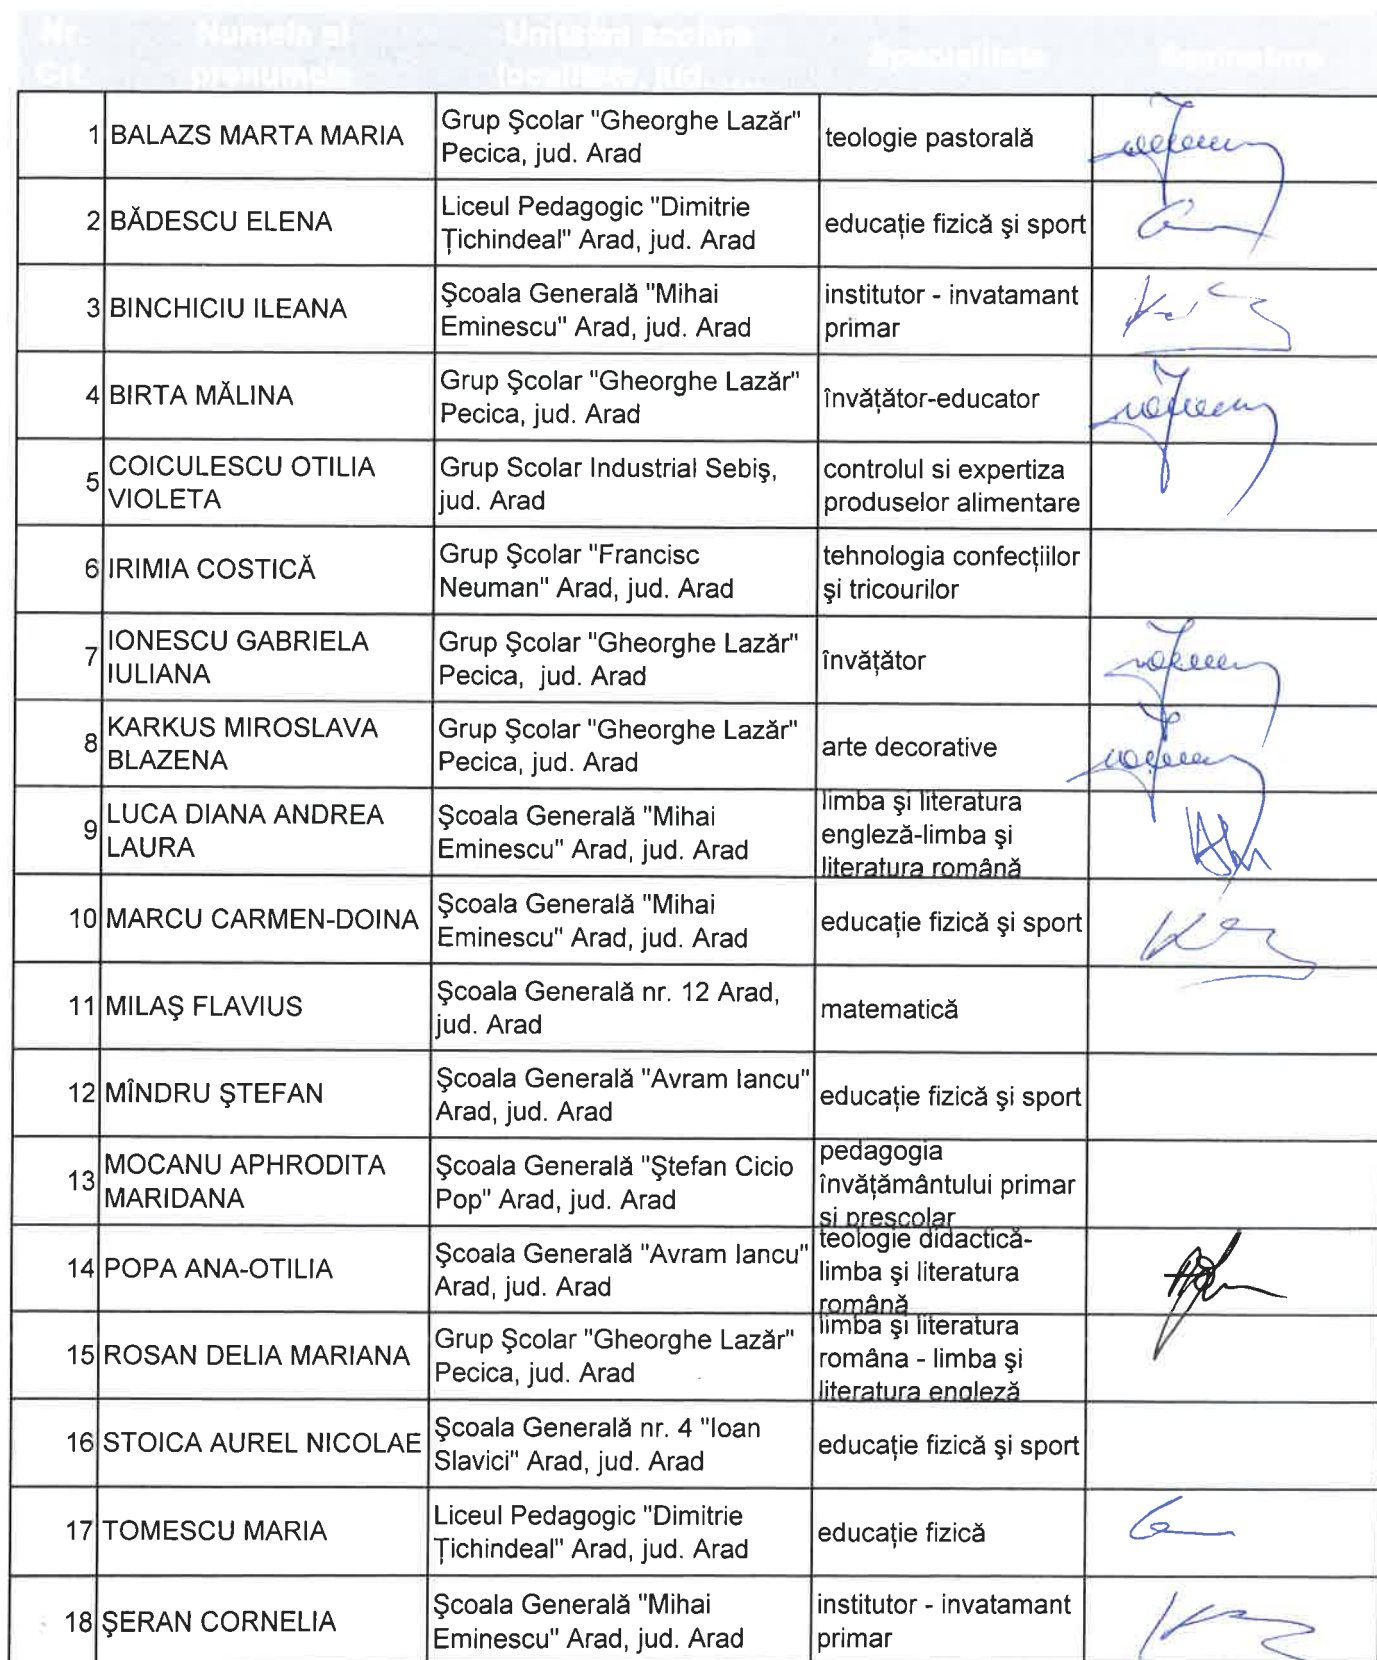 Nr. Numele si Unitatea scolara
Crt. prenumele localitate, jud. Specialitate Semnatura
1 BALAZS MARTA MARIA Grup Şcolar "Gheorghe Lazăr"
Pecica, jud. Arad teologie pastorală
2 BĂDESCU ELENA Liceul Pedagogic "Dimitrie
Ţichindeal" Arad, jud. Arad educaţie fizică şi sport
3 BINCHICIU ILEANA Şcoala Generală "Mihai
Eminescu" Arad, jud. Arad institutor - invatamant
primar
4 BIRTA MĂLINA Grup Şcolar "Gheorghe Lazăr"
Pecica, jud. Arad învăţător-educator
5 COICULESCU OTILIA
VIOLETA Grup Scolar Industrial Sebiş,
jud. Arad controlul si expertiza
produselor alimentare
6 IRIMIA COSTICĂ Grup Şcolar "Francisc
Neuman" Arad, jud. Arad tehnologia confecţiilor
şi tricourilor
7 IONESCU GABRIELA
IULIANA Grup Şcolar "Gheorghe Lazăr"
Pecica, jud. Arad învăţător
8 KARKUS MIROSLAVA
BLAZENA Grup Şcolar "Gheorghe Lazăr"
Pecica, jud. Arad arte decorative
9 LUCA DIANA ANDREA
LAURA Şcoala Generală "Mihai
Eminescu" Arad, jud. Arad limba şi literatura
engleză-limba şi
literatura română
10 MARCU CARMEN-DOINA Şcoala Generală "Mihai
Eminescu" Arad, jud. Arad educaţie fizică şi sport
11 MILAŞ FLAVIUS Şcoala Generală nr. 12 Arad,
jud. Arad matematică
12 MÎNDRU ŞTEFAN Şcoala Generală "Avram Iancu"
Arad, jud. Arad educaţie fizică şi sport
13 MOCANU APHRODITA
MARIDANA Şcoala Generală "Ştefan Cicio
Pop" Arad, jud. Arad pedagogia
învăţământului primar
si prescolar
14 POPA ANA-OTILIA Şcoala Generală "Avram Iancu"
Arad, jud. Arad teologie didactică-
limba şi literatura
română
15 ROSAN DELIA MARIANA Grup Şcolar "Gheorghe Lazăr"
Pecica, jud. Arad limba şi literatura
româna - limba şi
literatura engleză
16 STOICA AUREL NICOLAE Şcoala Generală nr. 4 "Ioan
Slavici" Arad, jud. Arad educaţie fizică şi sport
17 TOMESCU MARIA Liceul Pedagogic "Dimitrie
Ţichindeal" Arad, jud. Arad educaţie fizică
18 ŞERAN CORNELIA Şcoala Generală "Mihai
Eminescu" Arad, jud. Arad institutor - invatamant
primar